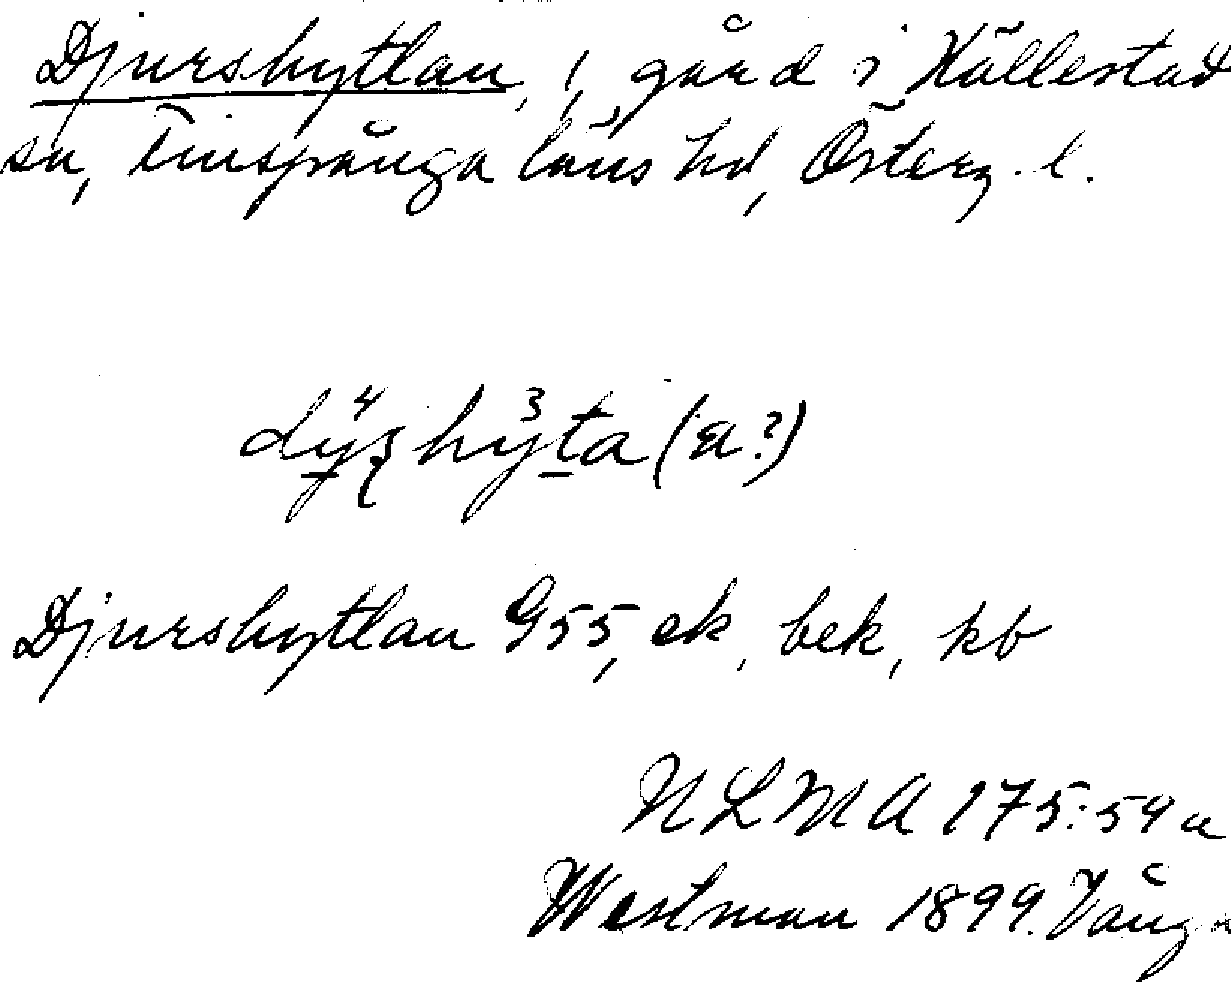 Djurshyttan, 1, gård i Hällestad
sn, Finspånga läns hd, Österg. l.
dy⁴ʂhy³ta (a?)
Djurshyttan G55, ek, bek, kb
NLMA 175:54 a
Westman 1899. Vånga